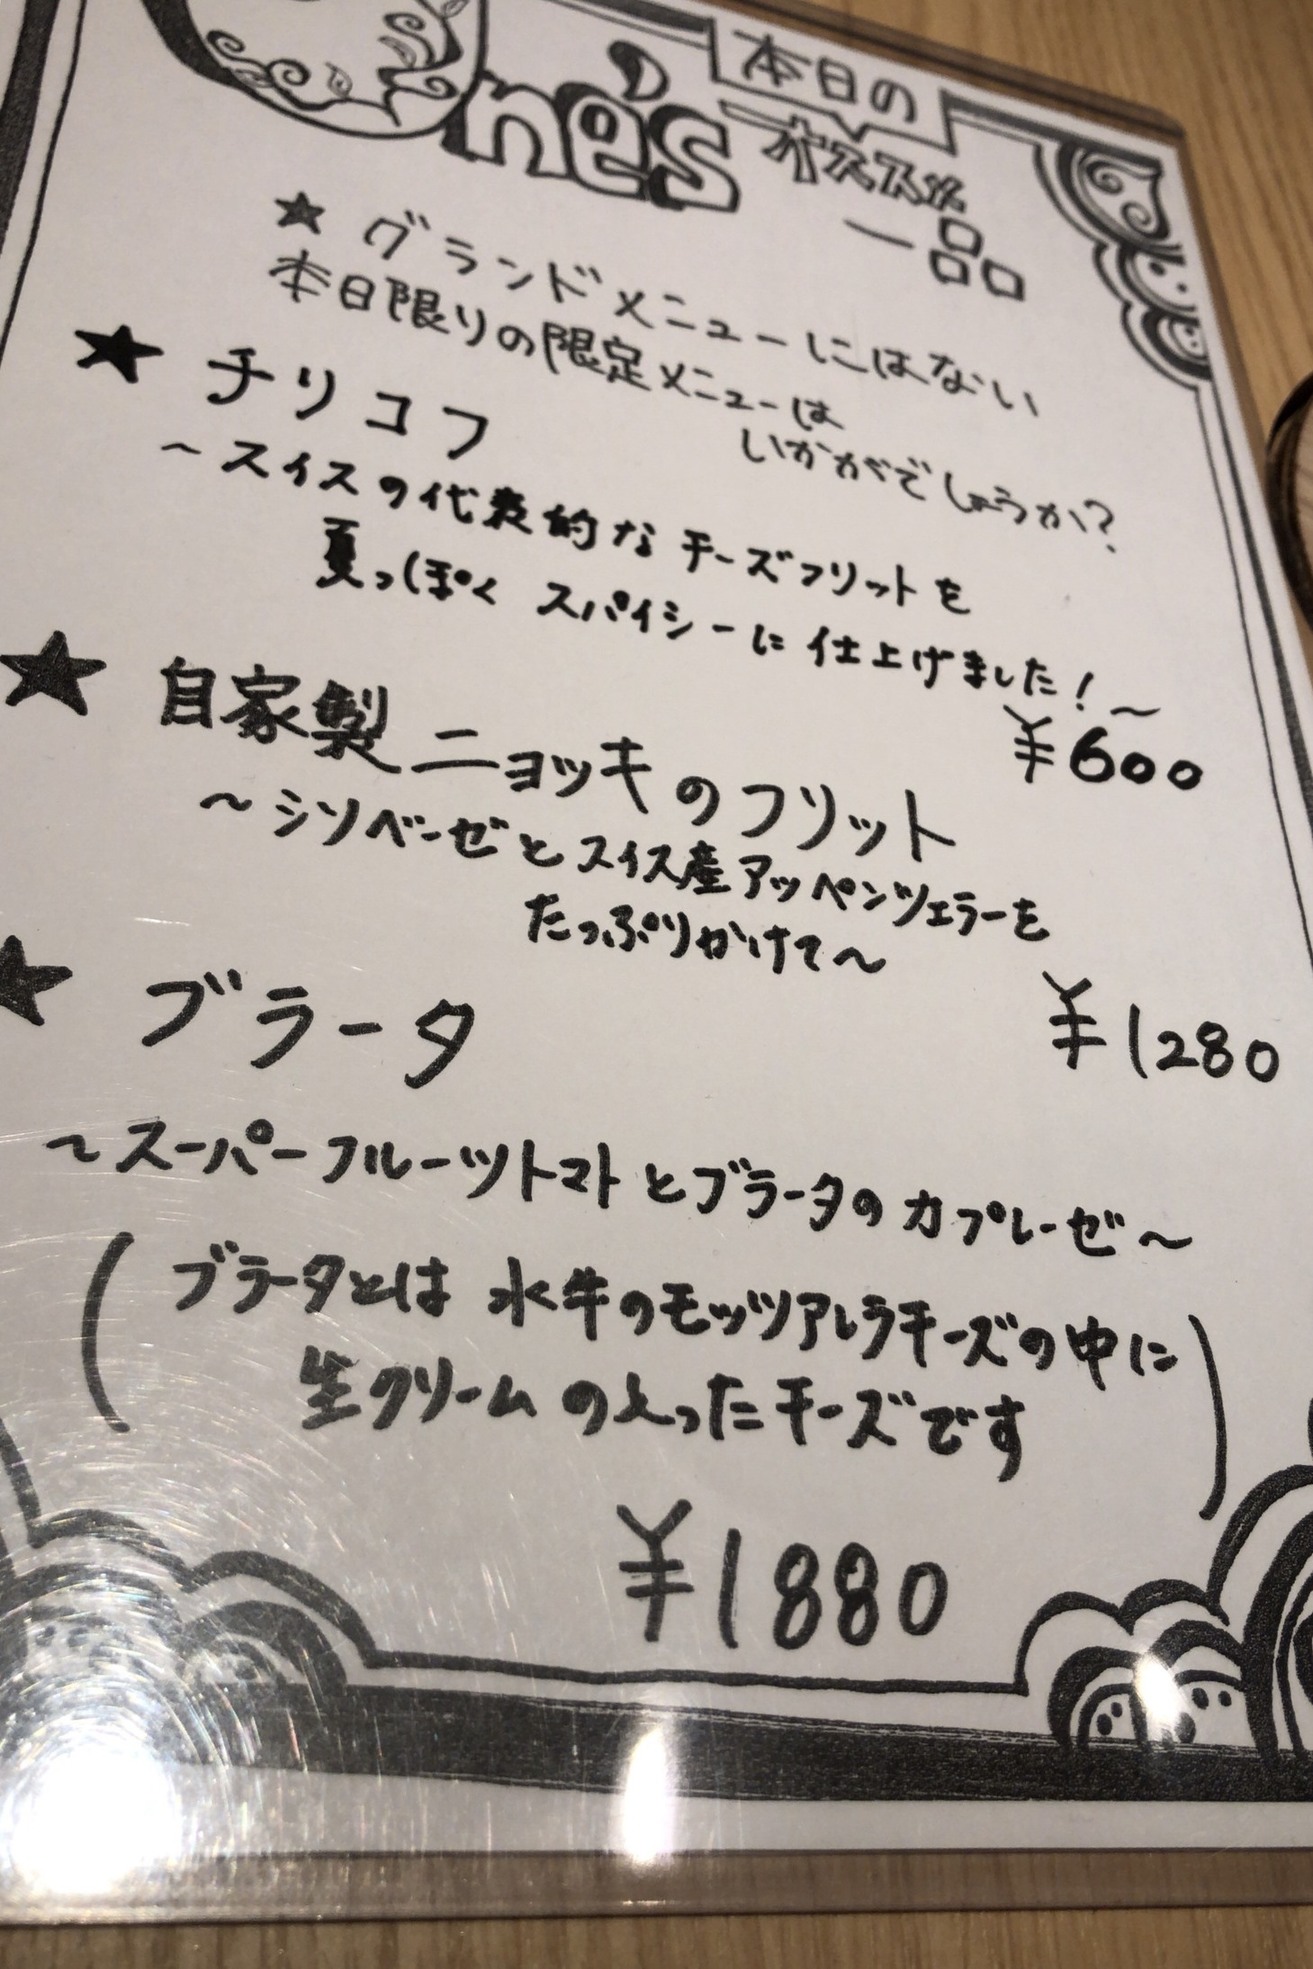 One's
本日の
オススメ
一品
★ グランドメニューにはない
本日限りの限定メニューは
いかがでしょうか?
★ チリコフ
~スイスの代表的なチーズフリットを
夏っぽく スパイシーに 仕上げました!~
¥600
★ 自家製ニョッキのフリット
~シソベーゼとスイス産アッペンツェラーを
たっぷりかけて~
¥1280
★ ブラータ
~スーパーフルーツトマトとブラータのカプレーゼ~
(ブラータとは 水牛のモッツアレラチーズの中に
生クリームの入ったチーズです)
¥1880